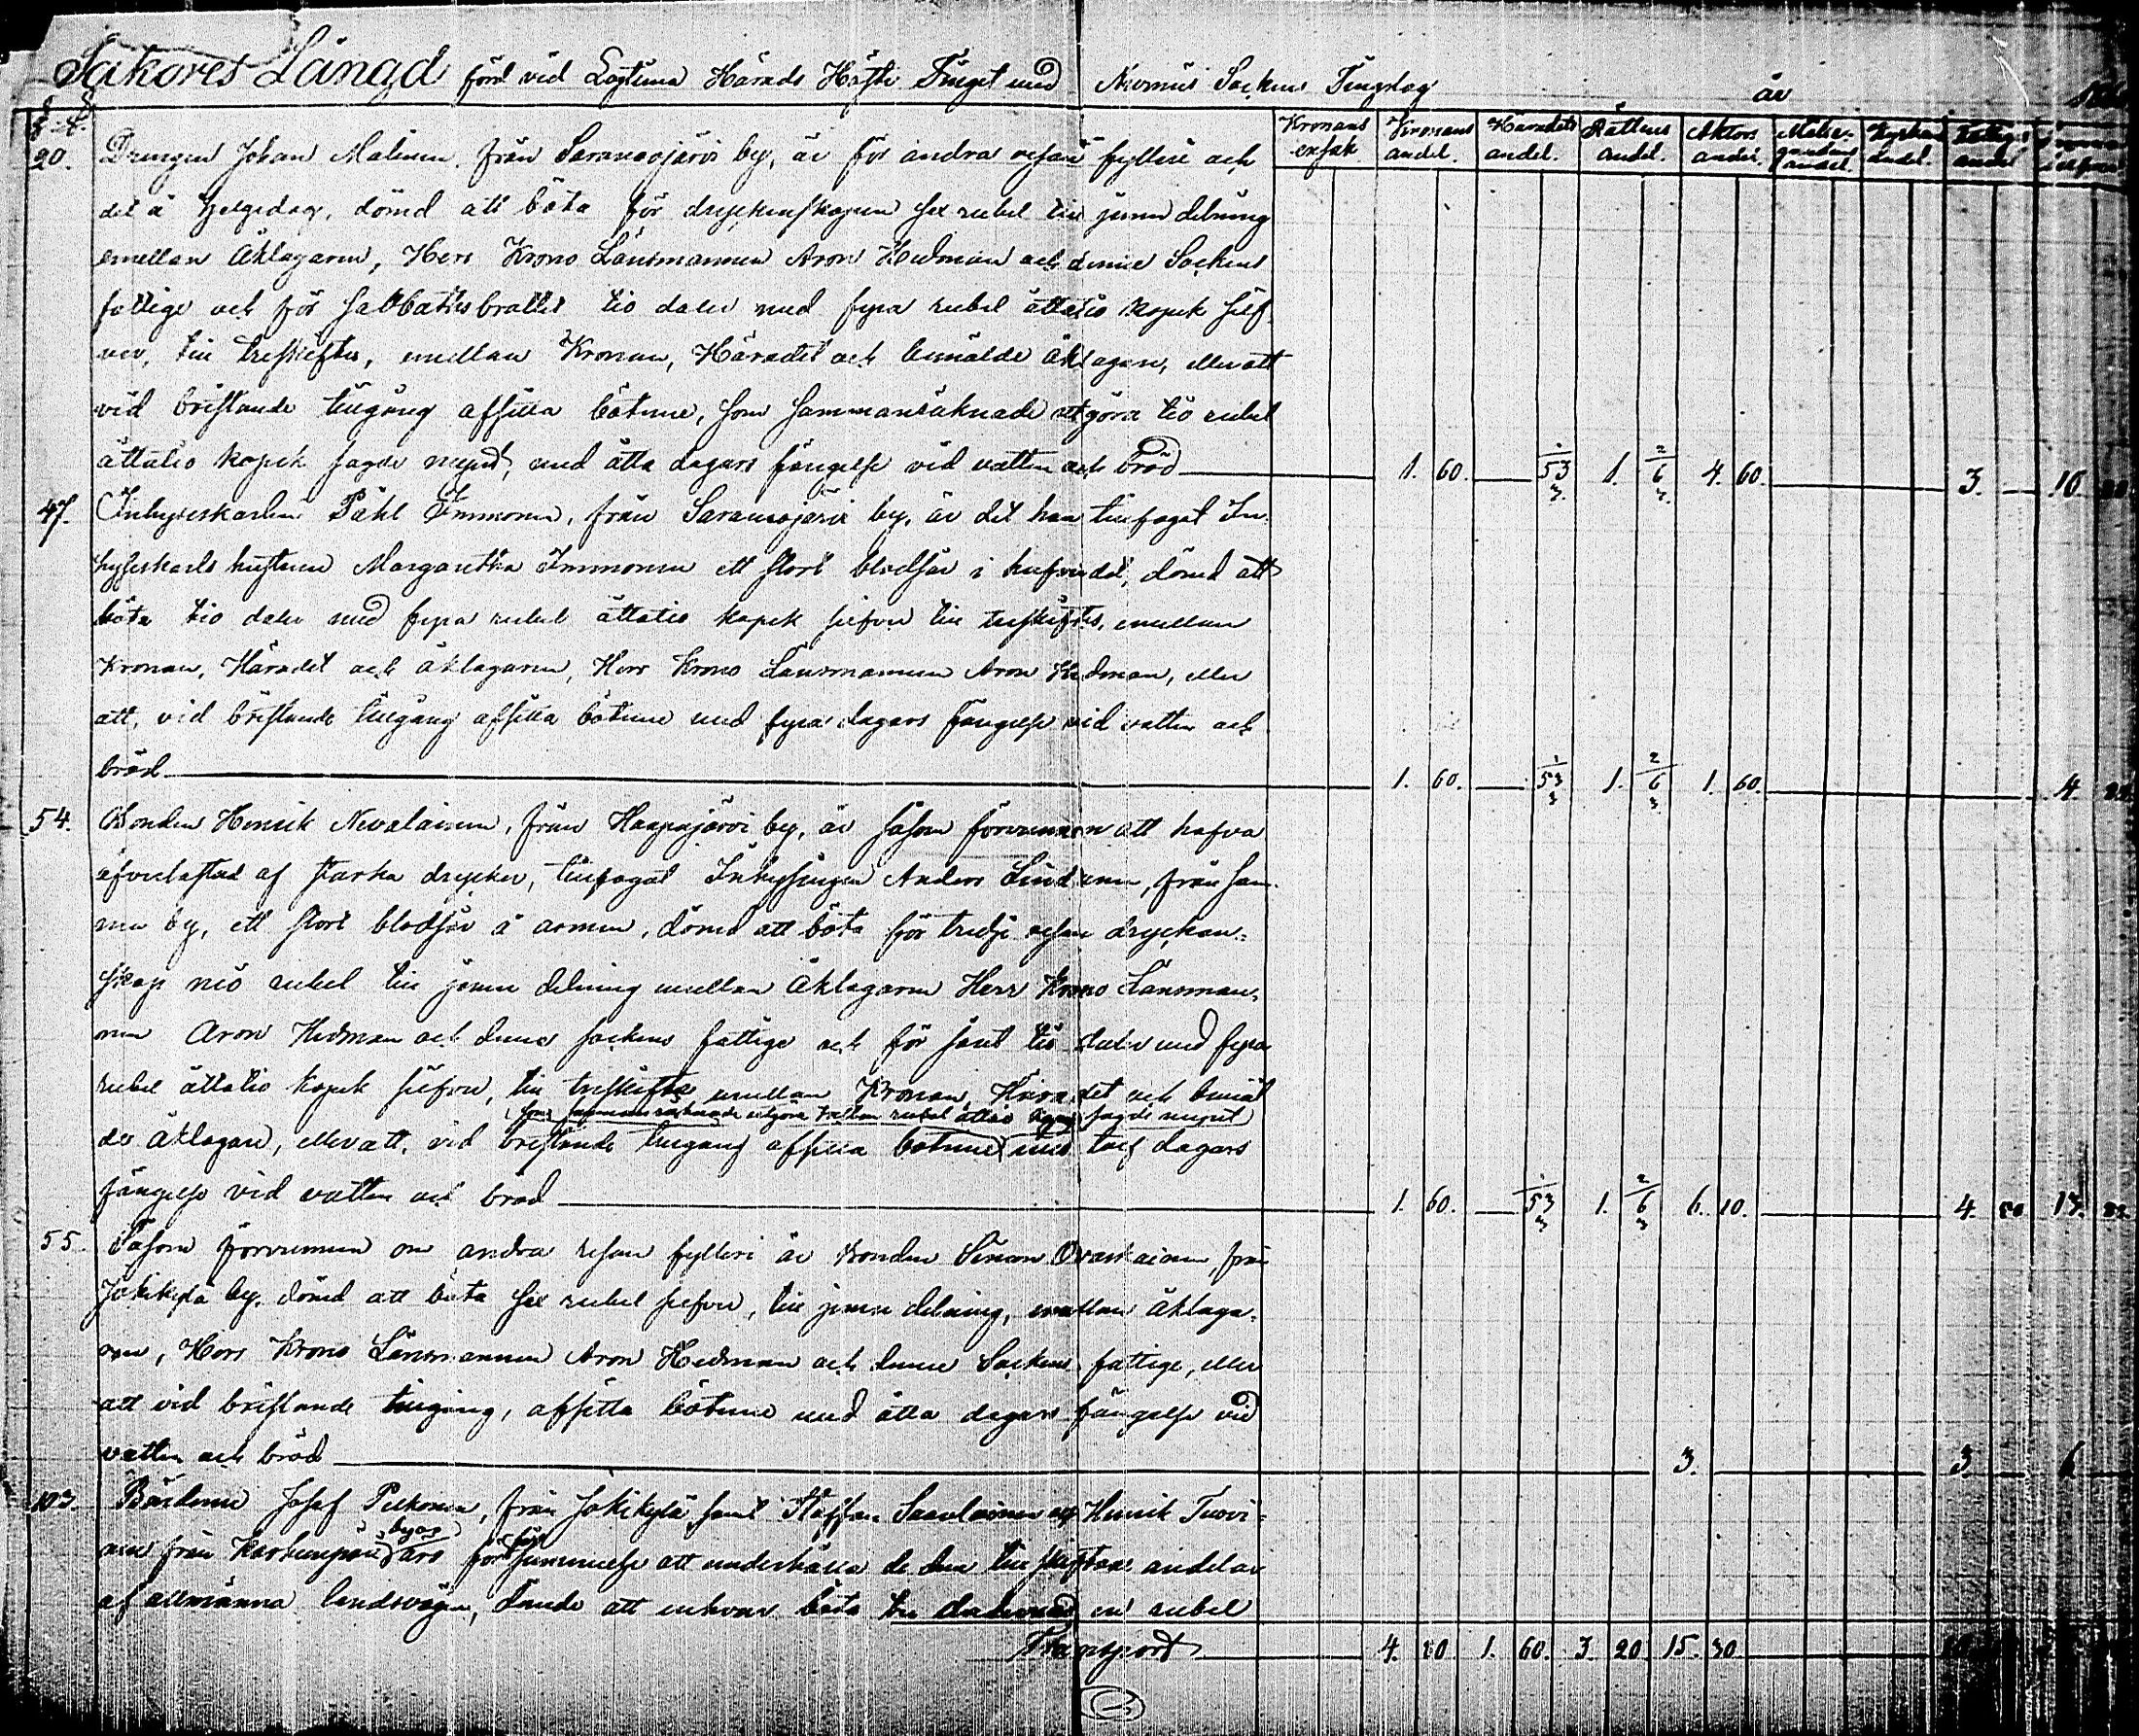 Saköres Längd förd vid Lagtima Härads Höste Tinget med Nurmis Sockens Tingslag år
§. §.
Kronans ensak Kronans andel. Häradets andel. Rättens andel. Aktors andel. Målsegandens andel. Kyrkans andel. Fattiges andel
20. Drängen Johan Malinen från Saramojärvi by, är för andra resan fylleri och
det å helgedag, dömd att böta för dryckenskapen sex rubel till jemn delning
emellan Åklagaren, Herr Krono Länsmannen Aron Hedman och denne Sockens
fattige och för sabbatsbrottet tio daler med fyra rubel åttatio kopek silf-
ver, till treskiftes, emellan Kronan, Häradet och bemälde åklagare, eller att
vid bristande tillgång afsitta böterne, som sammanräknade utgöra tio rubel
åttatio kopek sagde mynt, med åtta dagars fängelse vid vatten och bröd 1. 60. 53 1/3. 1. 6 2/3. 4. 60. 3. 10 80
47. Inhyseskarlen Påhl Immonen, från Saramojärvi by, är det han tillfogat In-
hyseskarls hustrun Margaretha Immonen ett stort blodsår i hufvudet, dömd att
böta tio daler med fyra rubel åttatio kopek silfver till treskiftes, emellan
Kronan, Häradet och åklagaren, Herr Krono Länsmannen Aron Hedman, eller
att, vid bristande tillgång afsitta böterne med fyra dagars fängelse vid vatten och
bröd 1. 60. 53 1/3 1. 6 2/3 1. 60. 4. 80.
54. Bonden Henrik Nevalainen, från Haapajärvi by, är såsom förvunnen att hafva
öfverlastad af starka drycker, tillfogat Inhysingen Anders Lindman, från sam-
ma by, ett stort blodsår å armen, dömd att böta för tredje resan drycken-
skap nio rubel till jemn delning emellan Åklagaren Herr Krono Länsman-
nen Aron Hedman och denne sockens fattige och för såret tio daler med fyra
rubel åttatio kopek silfver, till treskiftes emellan Kronan, Häradet och bemäl-
(som sammanräknade utgöra tretton rubel åttatio kopek sagde mynt)
de åklagare, eller att, vid bristande tillgång afsitta böterne med tolf dagars
fängelse vid vatten och bröd 1. 60. 53 1/3 1. 6 2/3 6. 10. 4. 50 13. 80.
55. Såsom förvunnen om andra resan fylleri är Bonden Simon Ovaskainen, från
Jokikylä by, dömd att böta sex rubel silfver, till jemn delning, emellan åklaga-
ren, Herr Krono Länsmannen Aron Hedman och denne Sockens fattige, eller
att vid bristande tillgång, afsitta böterne med åtta dagars fängelse vid
vatten och bröd 3. 3 6
103. Bönderne Josef Pulkonen, från Jokikylä samt Staffan Saavlainen och Henrik Turvi-
byar
nen från Karhunpää äro för försummelse att underhålla de dem tillskiftade andelar
af allmänna landsvägen, dömde att enhvar böta tre daler med en rubel
Transport 4. 80 1. 60. 3. 20. 15. 30